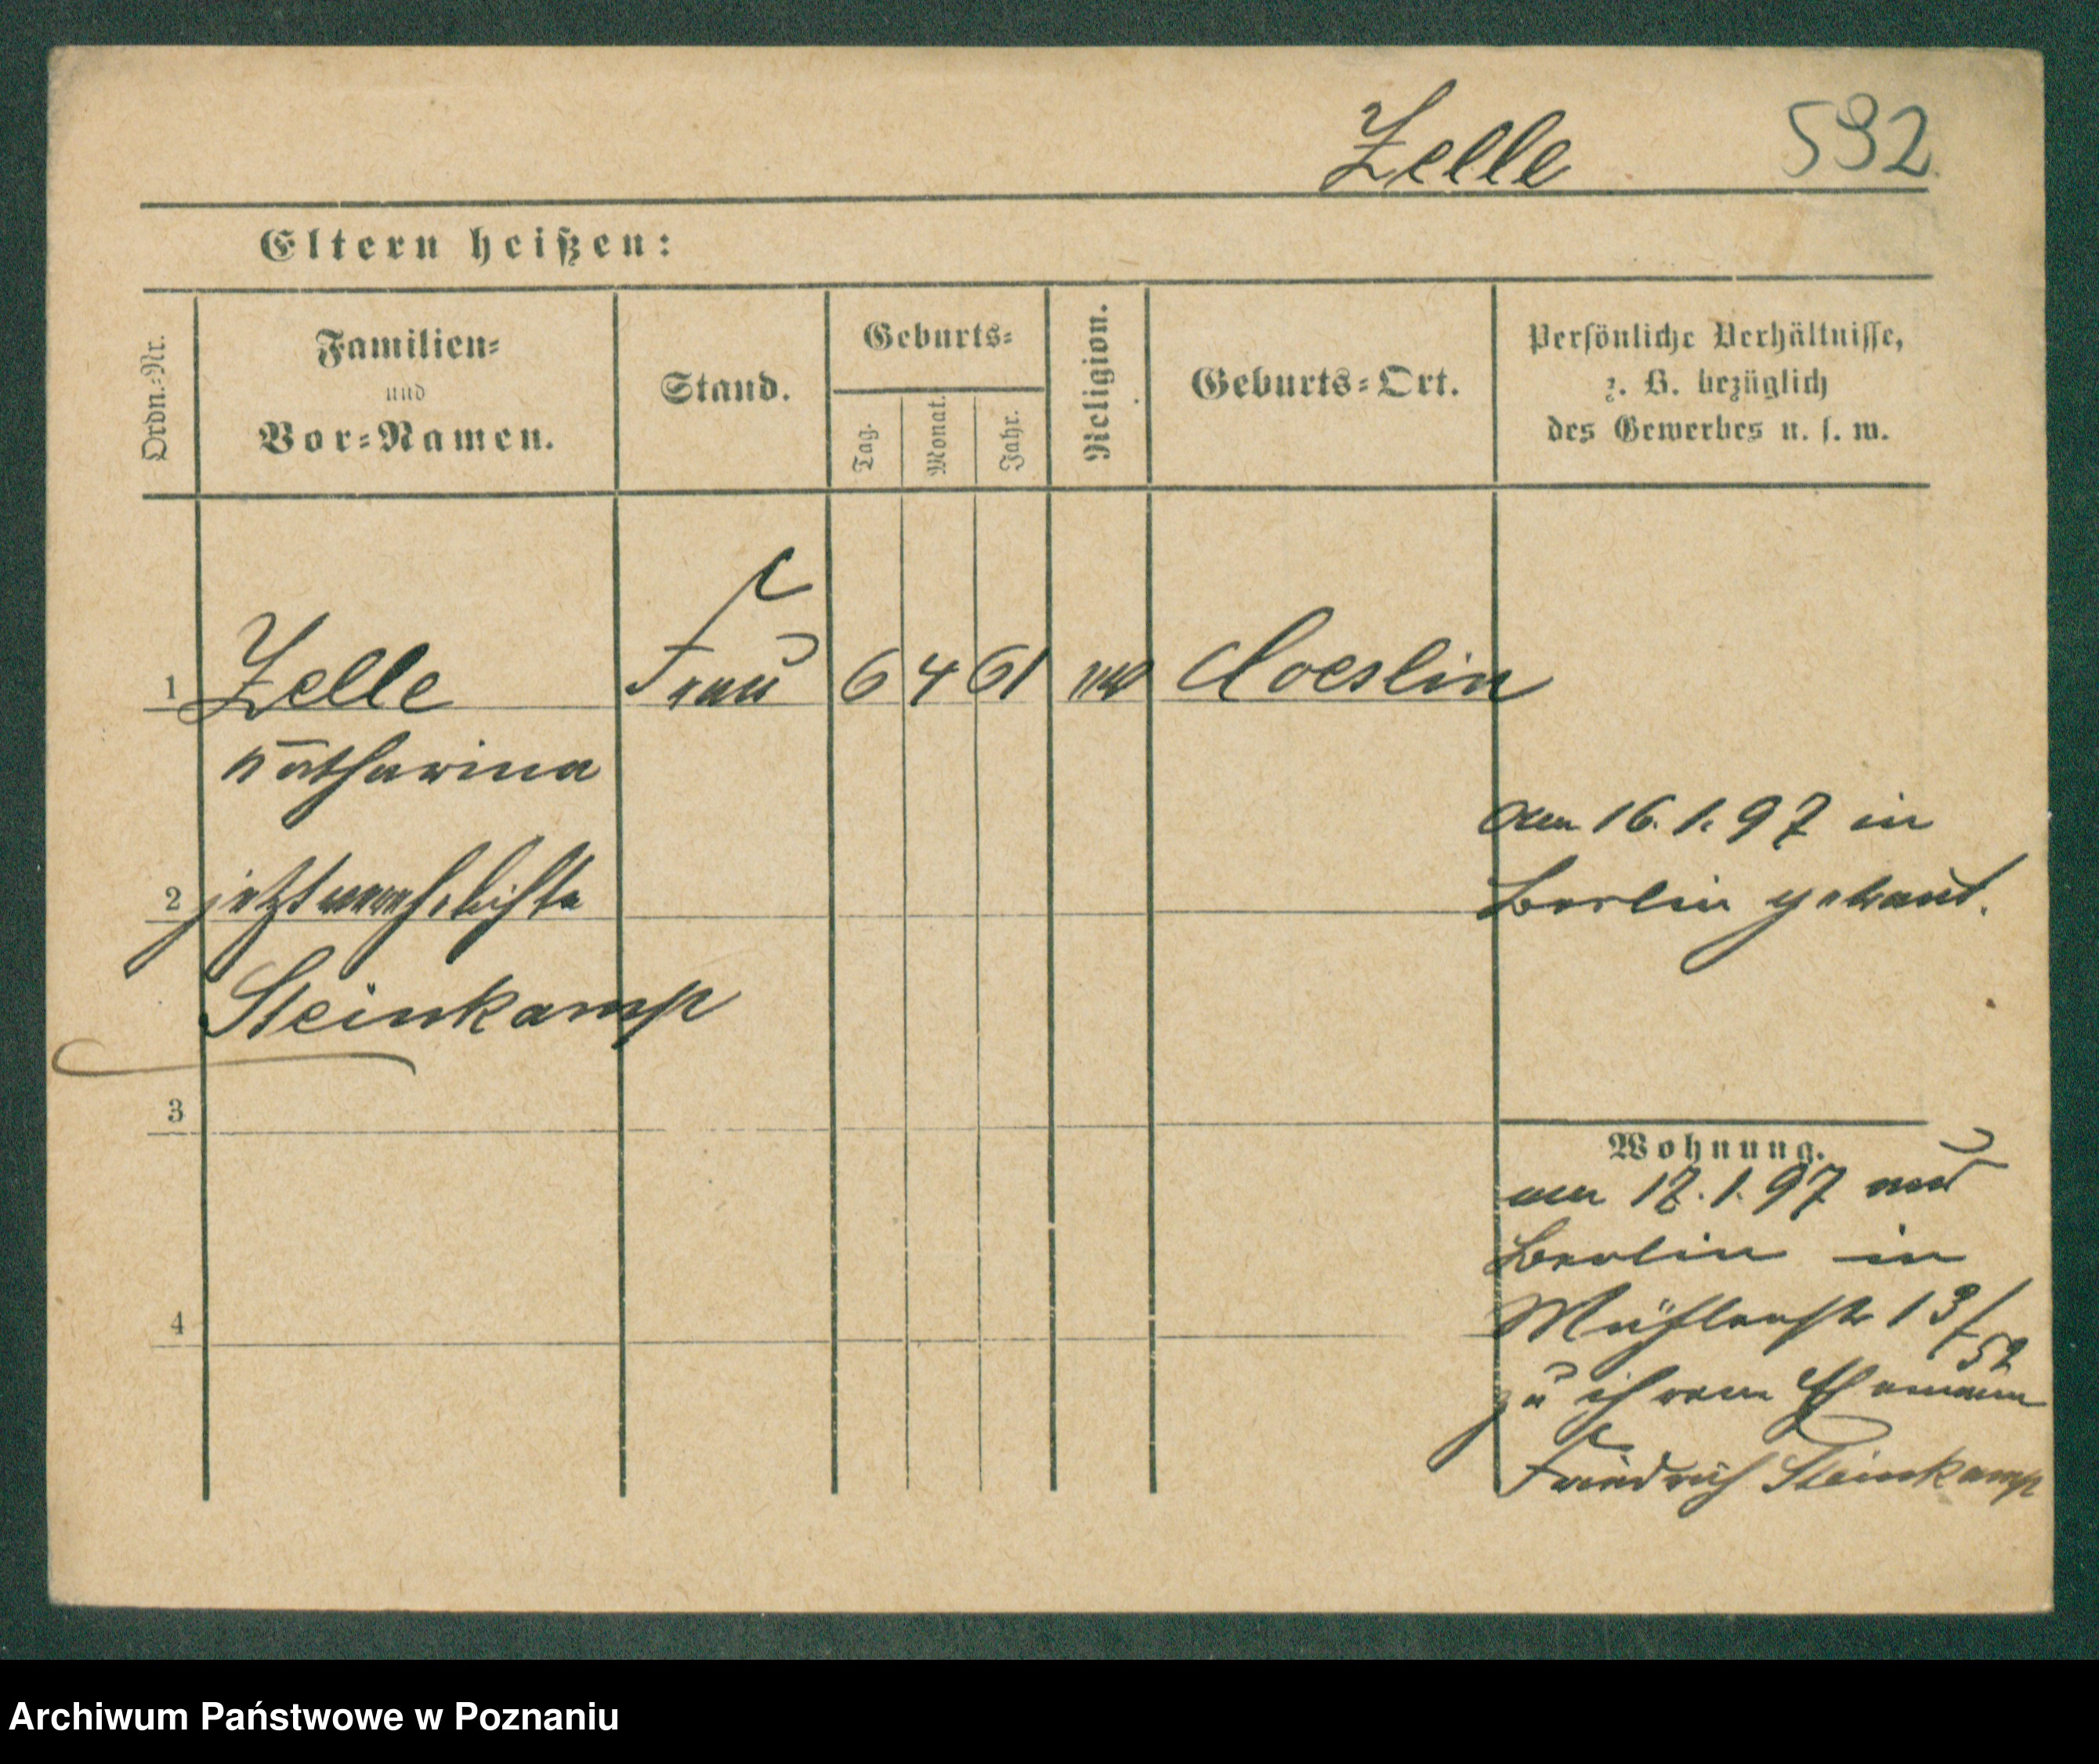 Zelle 592.
Eltern heißen:
Ordn.-Nr.
Familien-
und
Vor-Namen.
Stand.
Geburts-
Tag.
Monat.
Jahr.
Religion.
Geburts-Ort.
Persönliche Verhältnisse,
z. B. bezüglich
des Gewerbes u. s. w.
1 Zelle Frau 6 4 61 Coeslin
Katharina
am 16.1.97 in
2 jetzt verehelichte
Berlin getraut.
Steinkamp
3
Wohnung.
am 17.1.97 aus
Berlin in
Mühlenstr 13/
52
4
zu ihrem Ehemann
Friedrich Steinkamp
Archiwum Państwowe w Poznaniu